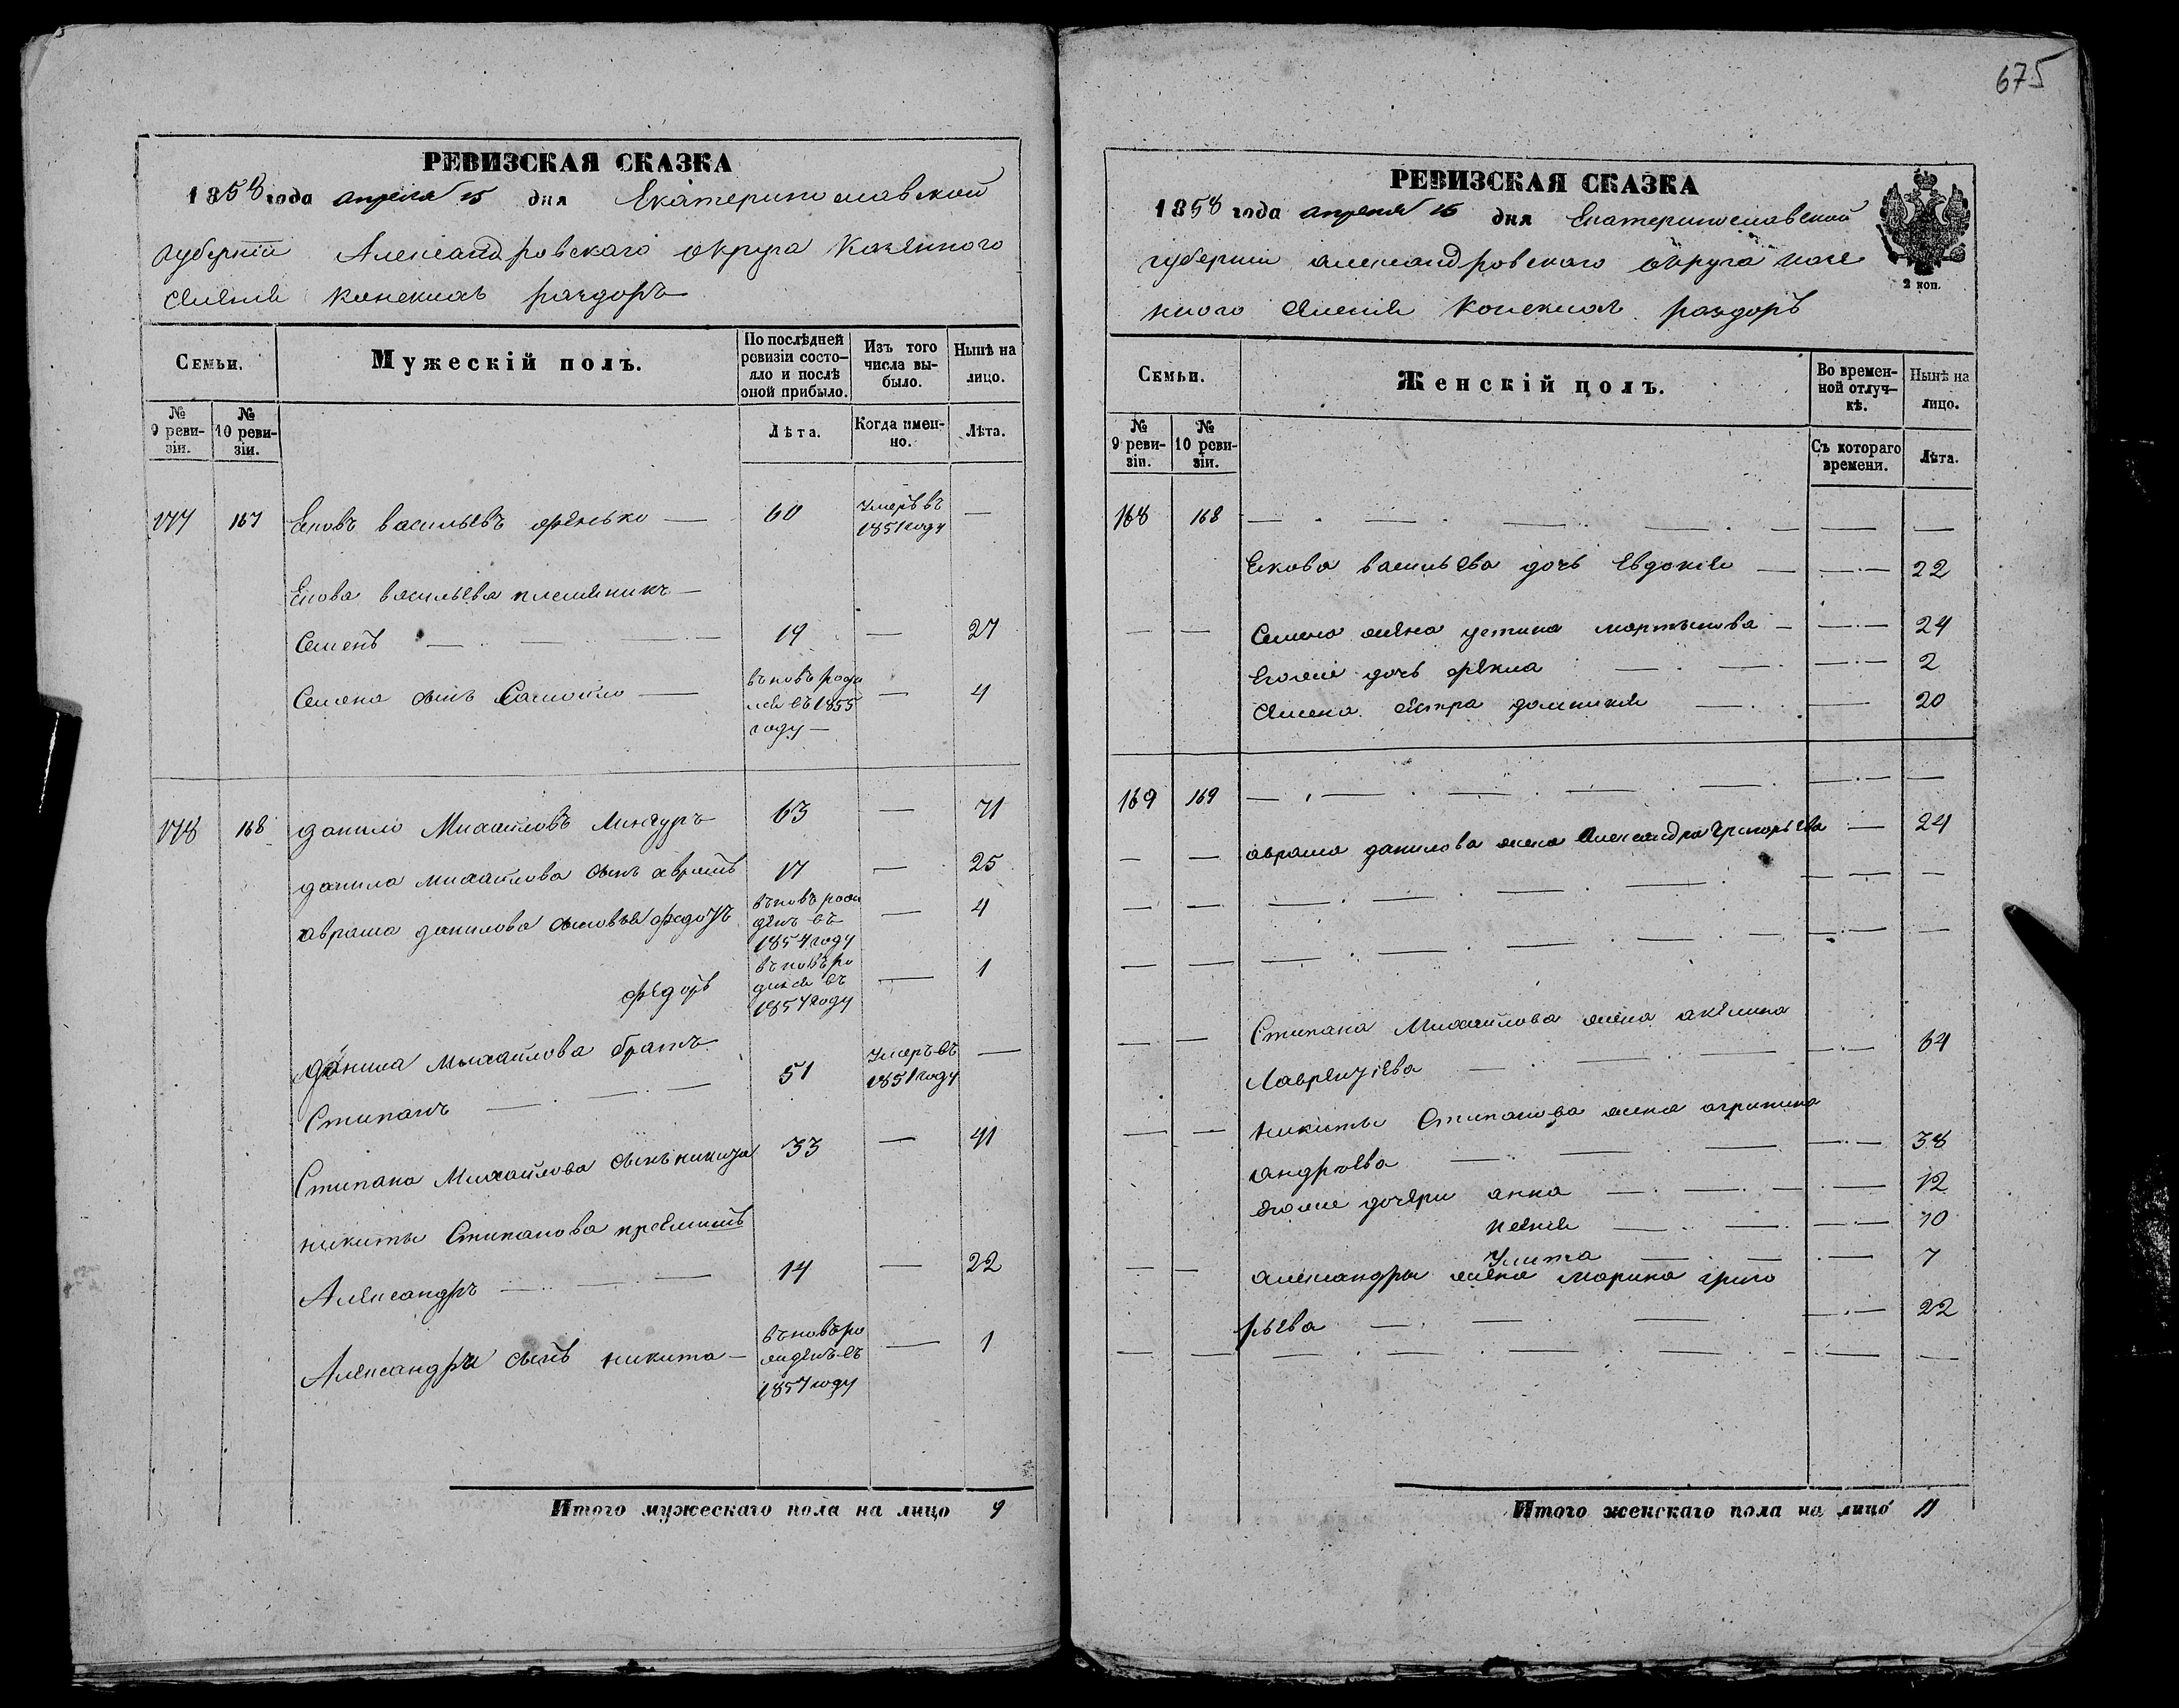 675
РЕВИЗСКАЯ СКАЗКА
1858 года апреля 15 дня Екатеринославской
губернiи Александровскаго округа Казенного
селения Конскихъ раздоръ
Семьи.
Мужескій полъ.
По послѣдней ревизіи состояло и послѣ оной прибыло.
Изъ того числа выбыло.
Нынѣ на лицо.
№ 9 ревизіи.
№ 10 ревизіи.
Лѣта.
Когда именно.
Лѣта.
177 167 Яковъ васильевъ 60 Умеръ въ 1851 году —
Якова васильева племяникъ —
Семенъ — 19 — 27
Семена сынъ Самойло — въновь роди лся въ 1855 году — — 4
178 168 данило Михайловъ 63 — 71
данила михайлова сынъ аврамъ 17 — 25
аврама данилова сыновья федотъ въновь рож денъ въ 1854 году — 4
федоръ въновь ро дился въ 1857 году — 1
данила михайлова братъ
Степанъ — 51 Умеръ въ 1851 году —
Степана Михайлова сынъ никита 33 — 41
никиты Степанова приемышъ
Александръ — 14 — 22
Александры сынъ никита — въновь ро жденъ въ 1857 году — 1
Итого мужескаго пола на лицо 9
РЕВИЗСКАЯ СКАЗКА
1858 года апреля 15 дня Екатеринославской
губернии александровского округа казе
нного селения Конскихъ раздоръ
2 коп.
Семьи.
Женскій полъ.
Во временной отлучкѣ.
Нынѣ на лицо.
№ 9 ревизіи.
№ 10 ревизіи.
Съ котораго времени.
Лѣта.
168 168 — — —
Якова васильева дочь Евдокия — — 22
— — Семена жена устина мартынова — — 24
Егоже дочь фекла — — 2
Семена сестра домникия — — 20
169 169 — — —
— — аврама данилова жена Александра григорьева — 24
— — — — —
— — — — —
— — Степана Михайлова жена акилина
Лаврентiева — — 64
— — никиты Степанова жена агрипина
андреева — — 38
Егоже дочери анна — — 12
— — 10
Улита — — 7
— — александры жена марина григо
рьева — — 22
— — — — —
Итого женскаго пола на лицо 11